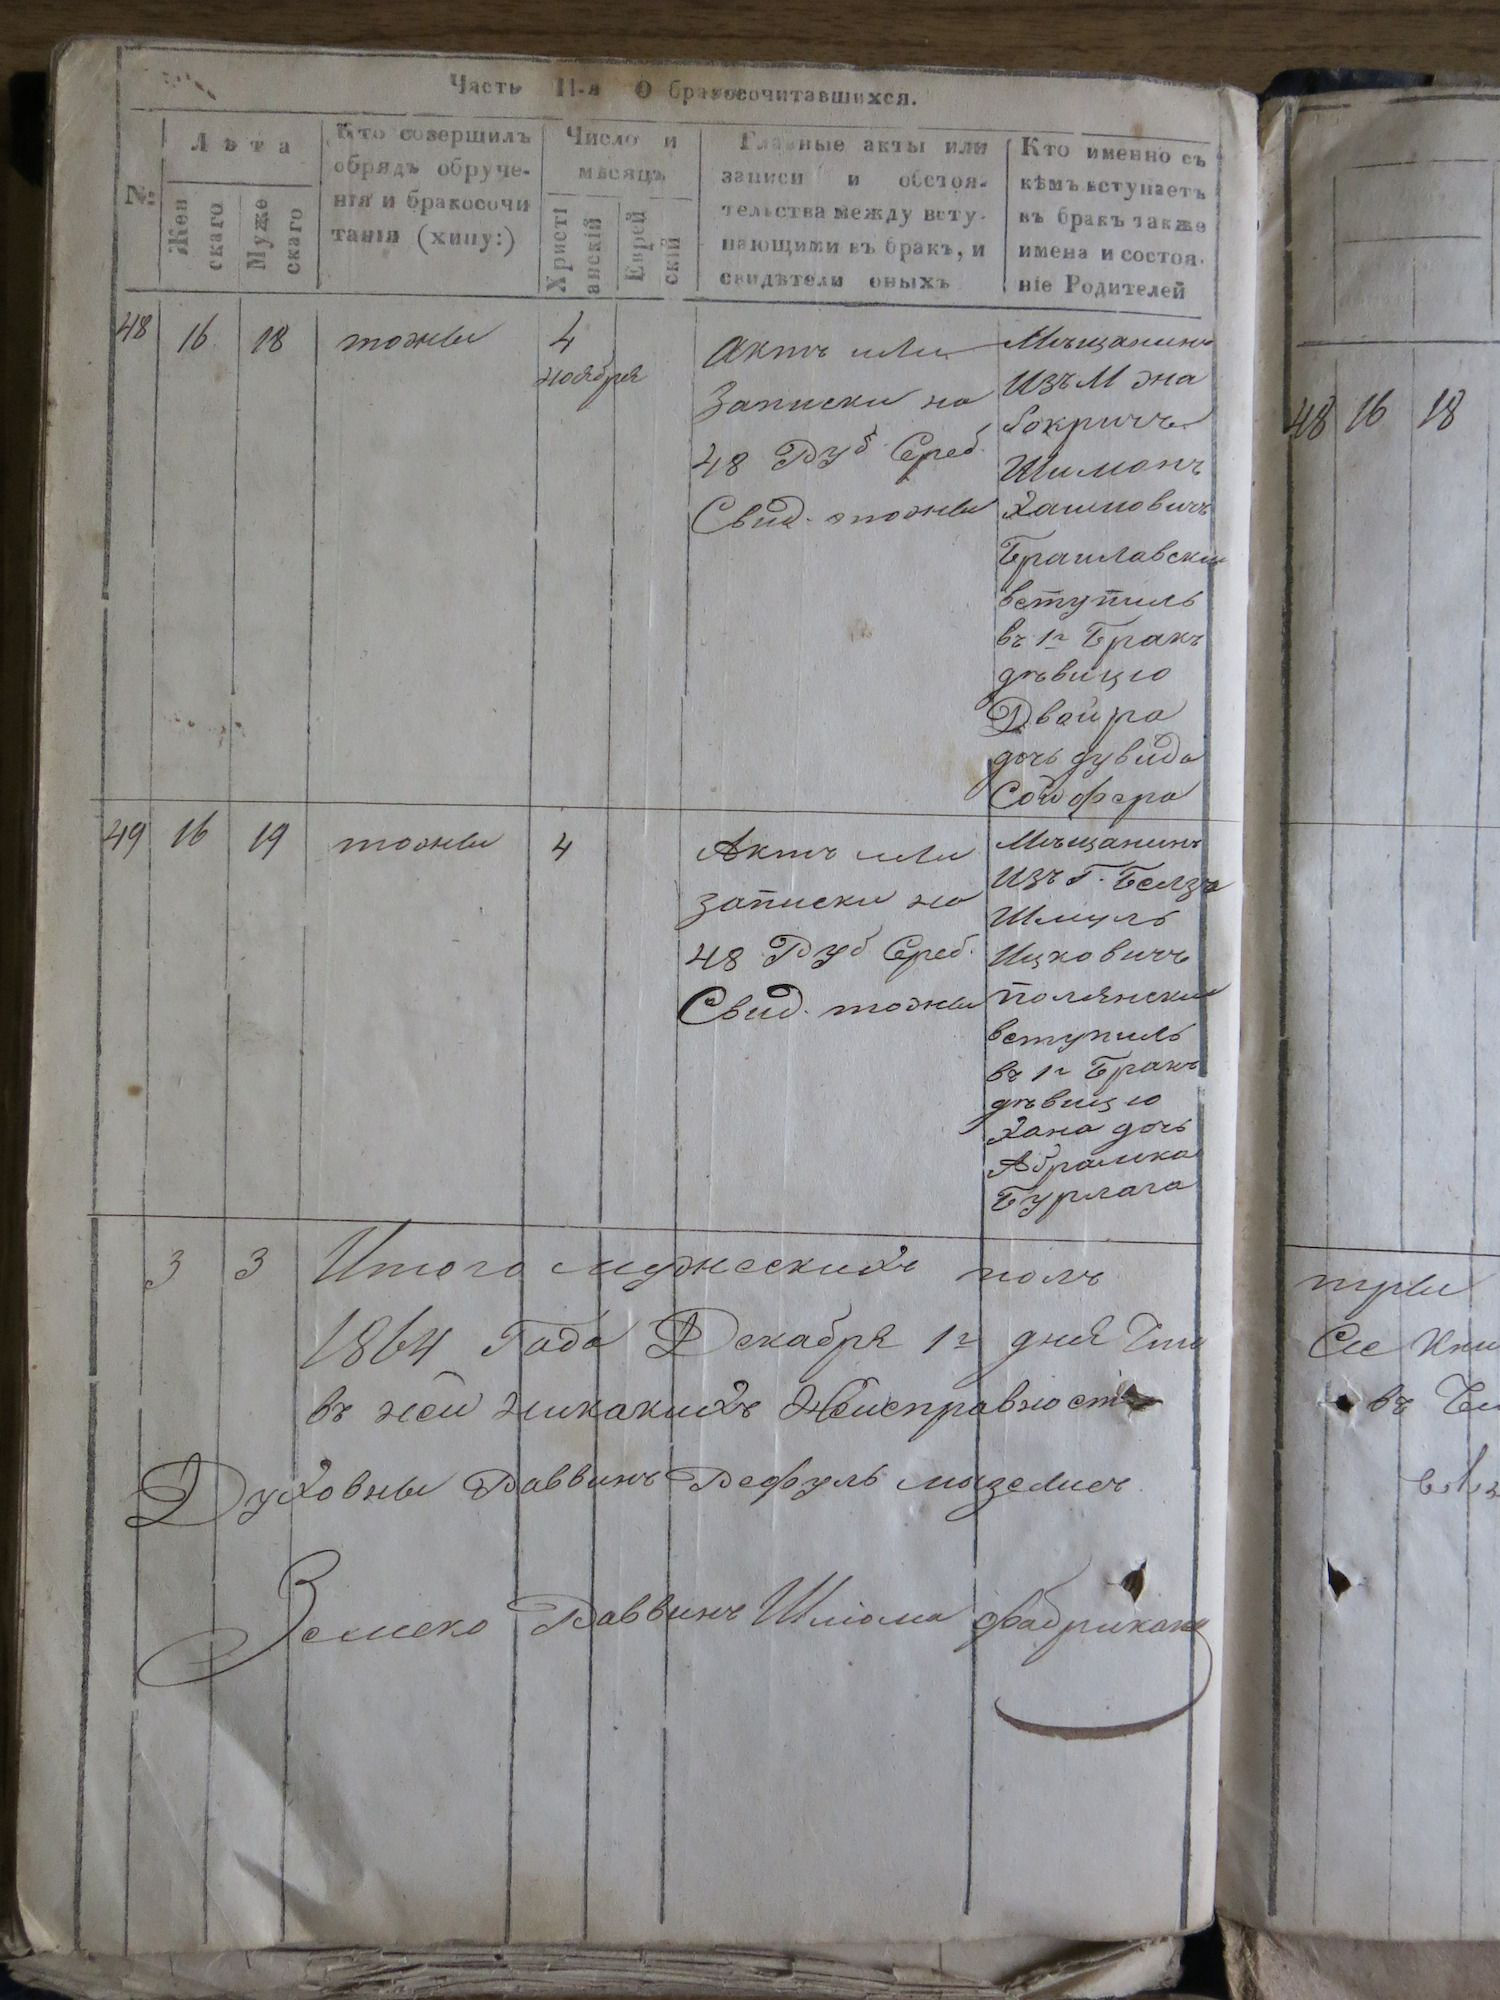 Часть II-я О бракосочитавшихся.
№:
Лѣта
Жен
скаго
Муже
скаго
Кто совершилъ
обрядъ обруче-
нія и бракосочи
танія (хипу:)
Число и
мѣсяцъ
Христі
анскій
Еврей
скій
Главные акты или
записи и обстоя-
тельства между всту-
пающими въ бракъ, и
свидѣтели оныхъ
Кто именно съ
кѣмъ вступаетъ
въ бракъ также
имена и состоя-
ніе Родителей
48 16 18 тожы 4
ноября
Актъ или
Записки на
48 Руб Сереб.
Свид. тожы
Мѣщанинъ
Изъ М
Шимонъ
Хаимовичъ
Браилавски
вступилъ
въ 1й Бракъ
дѣвицю
Двойра
дочь дувида
Сойфера
49 16 19 тожы 4
Актъ или
записки на
48 Руб Сереб.
Свид. тожы
Мѣщанинъ
Изъ Г. Белзъ
Шмуль
Ицковичъ
Полянски
вступилъ
въ 1й Бракъ
дѣвицю
Хана дочь
Абрамка
Бурлага
3 3 Итого мужескихъ полъ
1864 Года Декабря 1го дня
въ ней никакихъ Неисправност
Духовны Раввинъ Рефуль
Раввинъ Шлома Фабрикант
48 16 18
три
Сие Кни
въ